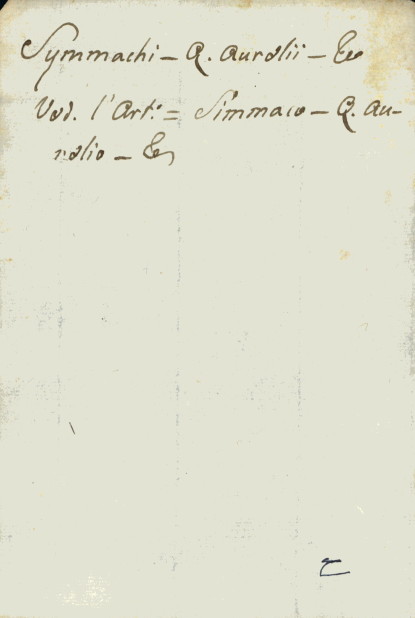 Symmachi - Q. Aurelii - &c
Ved. l'Art.° = Simmaco - Q. Au-
relio - &c